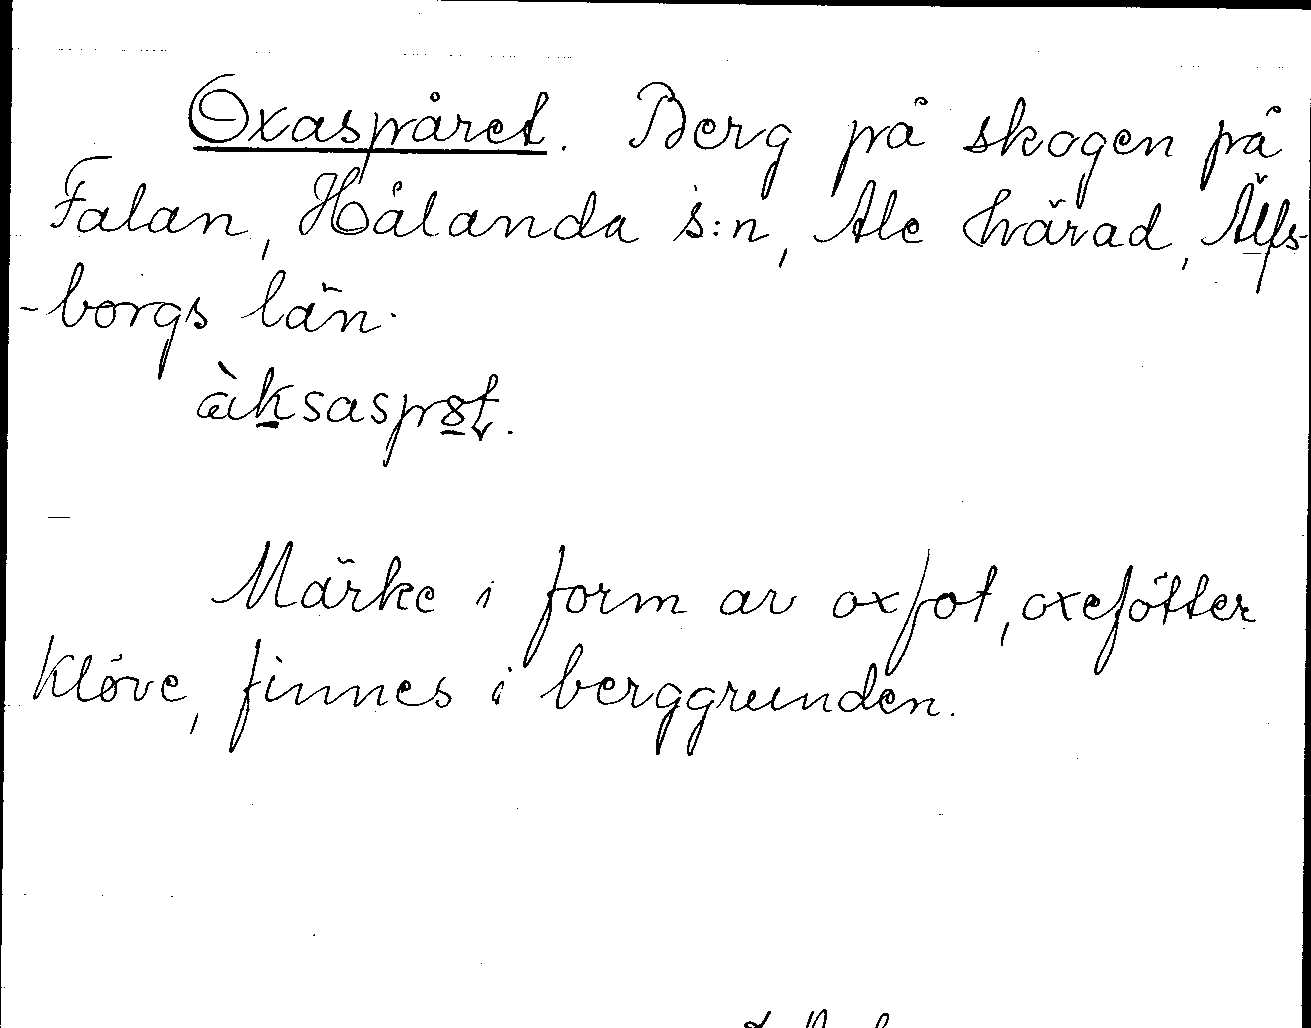 Oxaspåret. Berg på skogen på
Falan, Hålanda s:n, Ale härad, Älfs-
-borgs län.
Märke i form av oxfot, oxefötter
klöve, finnes i berggrunden.